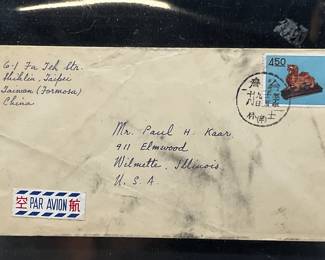 6-1 Fu Teh Str.
Shihlin, Taipei
Taiwan (Formosa)
China
450
Mr. Paul H. Kaar
911 Elmwood
Wilmette, Illinois
U. S. A.
空 PAR AVION 航